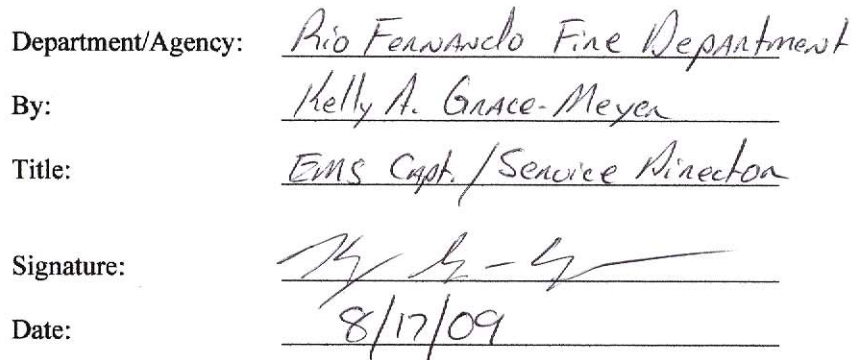 Department/Agency: Rio Fernando Fire Department
By: Kelly A. Grace-Meyer
Title: EMS Capt./Service Director
Signature:
Date: 8/17/09